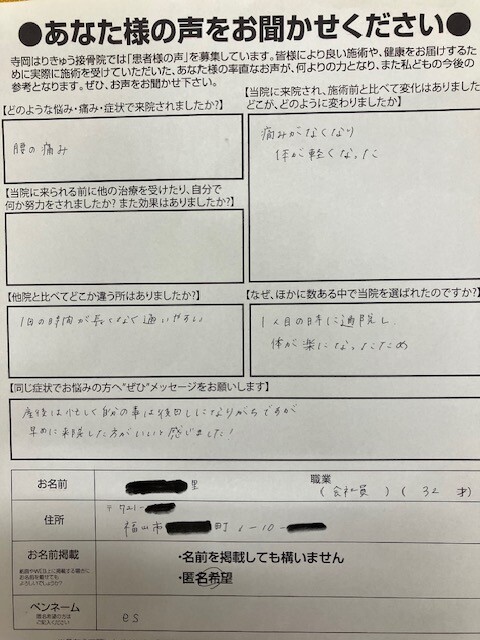 ●あなた様の声をお聞かせください●
寺岡はりきゅう接骨院では「患者様の声」を募集しています。皆様により良い施術や、健康をお届けするた
めに実際に施術を受けていただいた、あなた様の率直なお声が、何よりの力となり、また私どもの今後の
参考となります。ぜひ、お声をお聞かせ下さい。
【どのような悩み・痛み・症状で来院されましたか?】
腰の痛み
【当院に来られる前に他の治療を受けたり、自分で
何か努力をされましたか? また効果はありましたか?】
【当院に来院され、施術前と比べて変化はありました
どこが、どのように変わりましたか】
痛みがなくなり
体が軽くなった
【他院と比べてどこか違う所はありましたか?】
1回の時間が長くなく通いやすい
【なぜ、ほかに数ある中で当院を選ばれたのですか?】
1人目の時に通院し
体が楽になったため
【同じ症状でお悩みの方へ"ぜひ"メッセージをお願いします】
産後は忙しく自分の事は後回しになりがちですが
早めに来院した方がいいと感じました!
お名前
里
職業
(会社員)(32才)
住所
〒721-
福山市 町1-10-
お名前掲載
・名前を掲載しても構いません
・匿名希望
ペンネーム
匿名希望の方は
ご記入ください
es